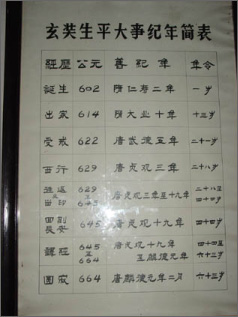 玄奘生平大事纪年简表
經歷 公元 紀年 年令
誕生 602 隋仁寿二年 一岁
出家 614 隋大业十年 十三岁
受戒 622 唐武德五年 二十一岁
西行 629 唐贞观三年 二十八岁
629 645 唐贞观三年至十九年 二十八至四十四岁
回到長安 645 唐贞观十九年 四十四岁
譯經 645至664 唐贞观十九年至麟德元年 四十四至六十三岁
圓寂 664 唐麟德元年二月 六十三岁